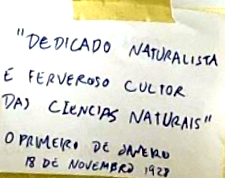 "DEDICADO NATURALISTA
E FERVEROSO CULTOR
DAS CIENCIAS NATURAIS"
O PRIMEIRO DE JANEIRO
18 DE NOVEMBRO 1928